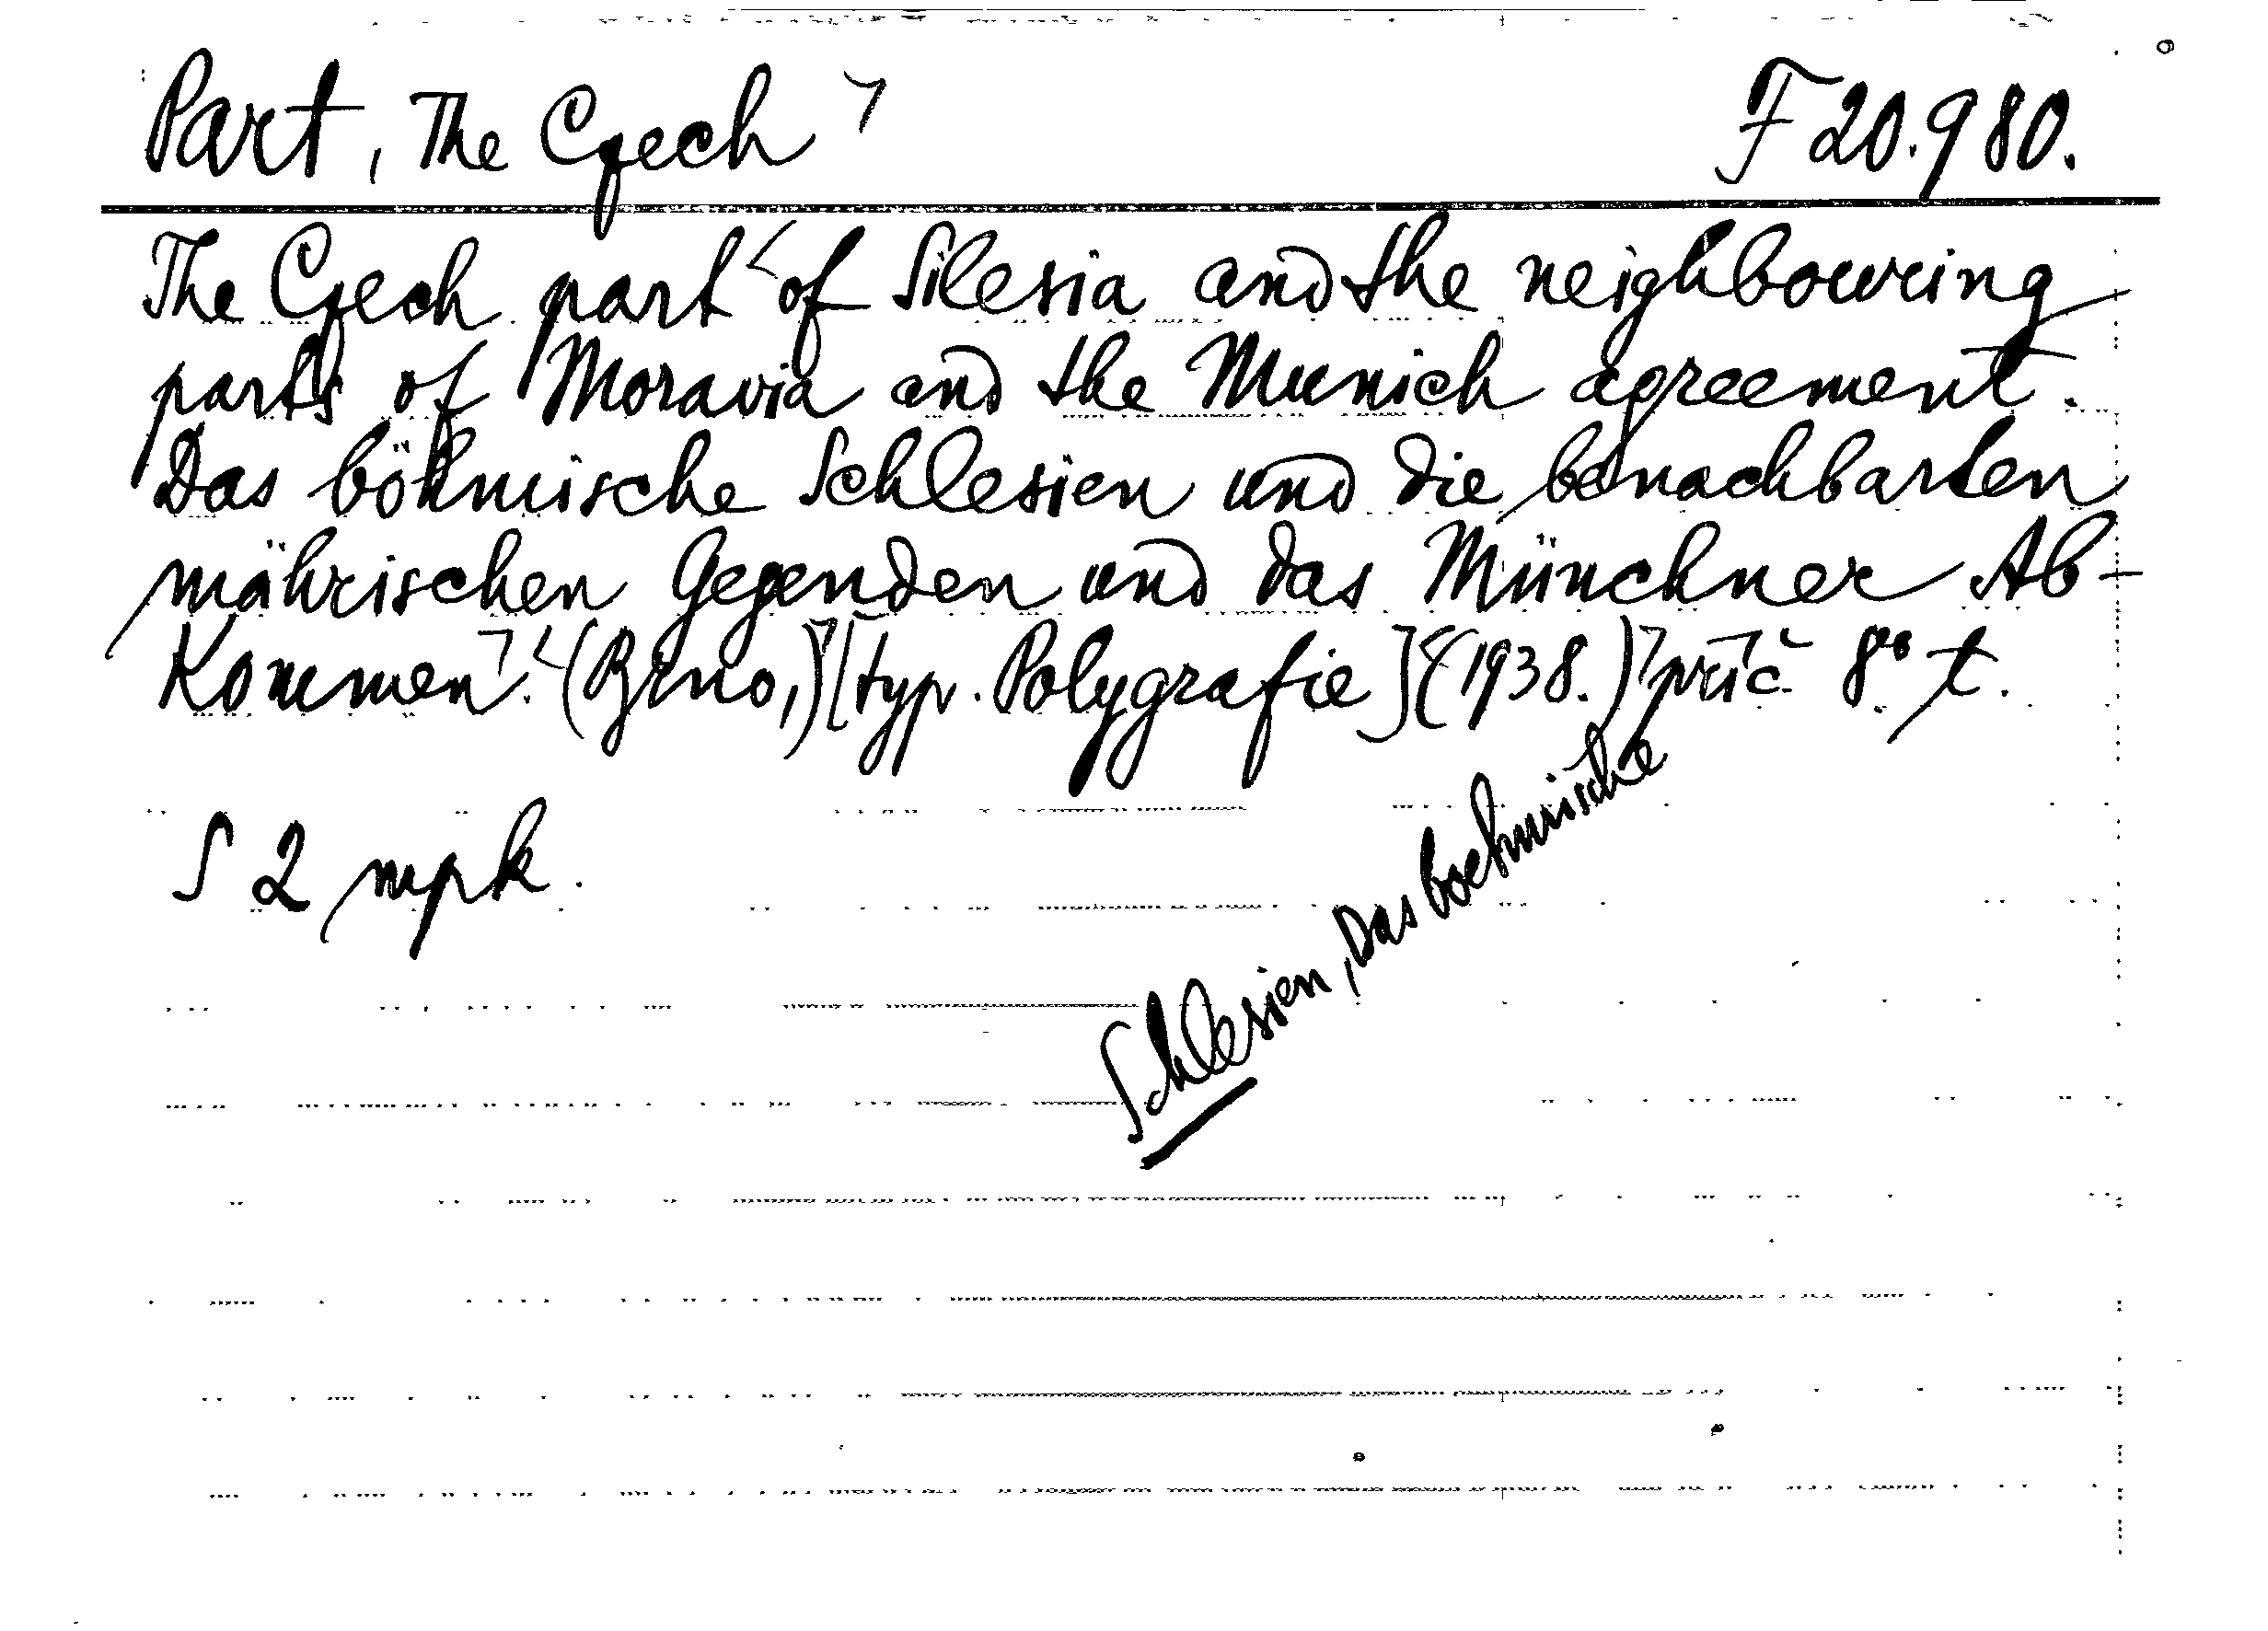 Part, The Czech ⌝ F 20.980.
The Czech part of Silesia and the neighbouring
parts of Moravia and the Munich agreement.
Das böhmische Schlesien und die benachbarten
mährischen Gegenden und das Münchner Ab-
kommen. (Brno,) [typ. Polygrafie] (1938.) příč 8° t.
S 2 mpk.
Schlesien, Das boehmische